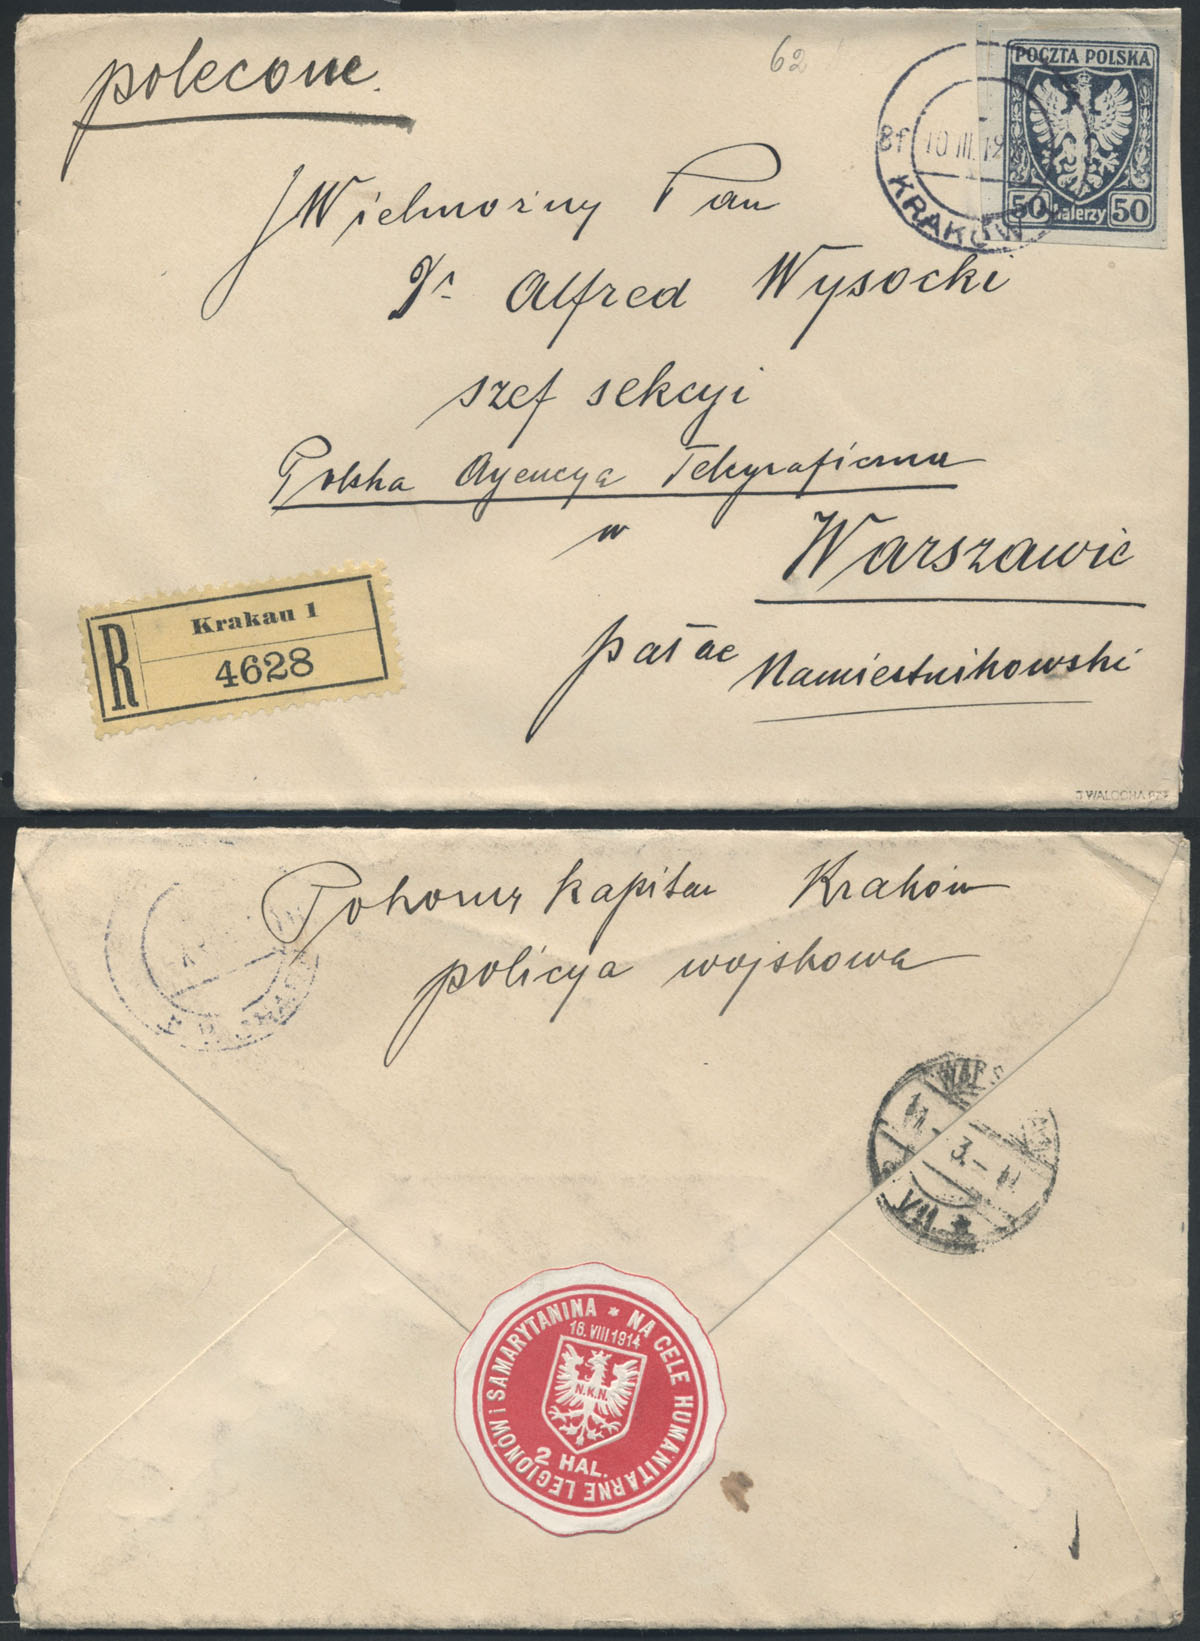 polecone.
62
POCZTA POLSKA
50 halerzy 50
8f 10 III 19
KRAKÓW
JWielmożny Pan
Dr Alfred Wysocki
szef sekcyi
Polska Agencya Telegraficzna
w
Warszawie
pałac
Namiestnikowski
R
Krakau 1
4628
J WALOCHA PZF
kapitan Kraków
policya wojskowa
11.-3.-
VII *
NA CELE HUMANITARNE LEGIONÓW i SAMARYTANINA *
16. VIII 1914
N.K.N.
2 HAL.